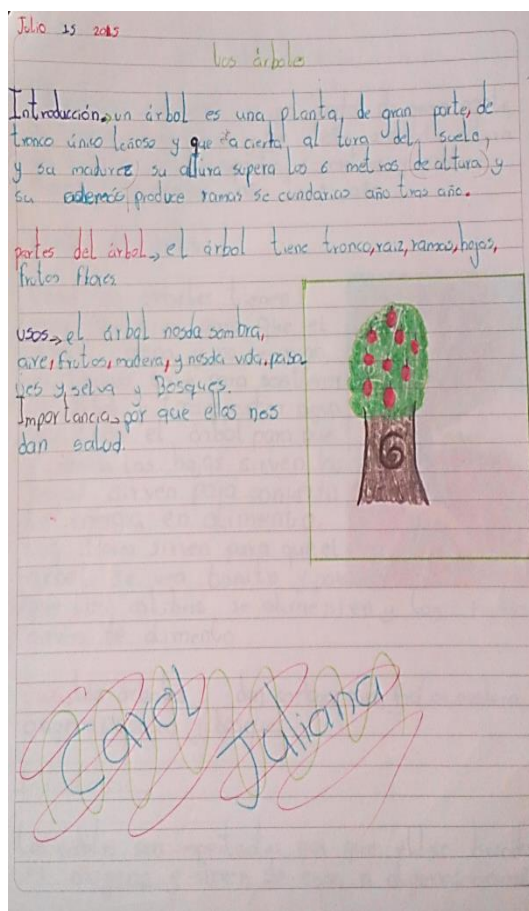 Julio 15 2015
Los árboles
Introducción→un árbol es una planta, de gran porte, de
tronco único leñoso y que a cierta al tura del suelo,
y su madurez su altura supera los 6 metros, de altura y
su además produce ramas se cundarias año tras año.
partes del árbol→el árbol tiene tronco, raiz, ramas, hojas,
frutos flores
usos→el árbol nosda sombra,
aire, frutos, madera, y nosda vida, paisa
jes y selva y Bosques.
Importancia→por que ellos nos
dan salud.
6
Carol
Juliana